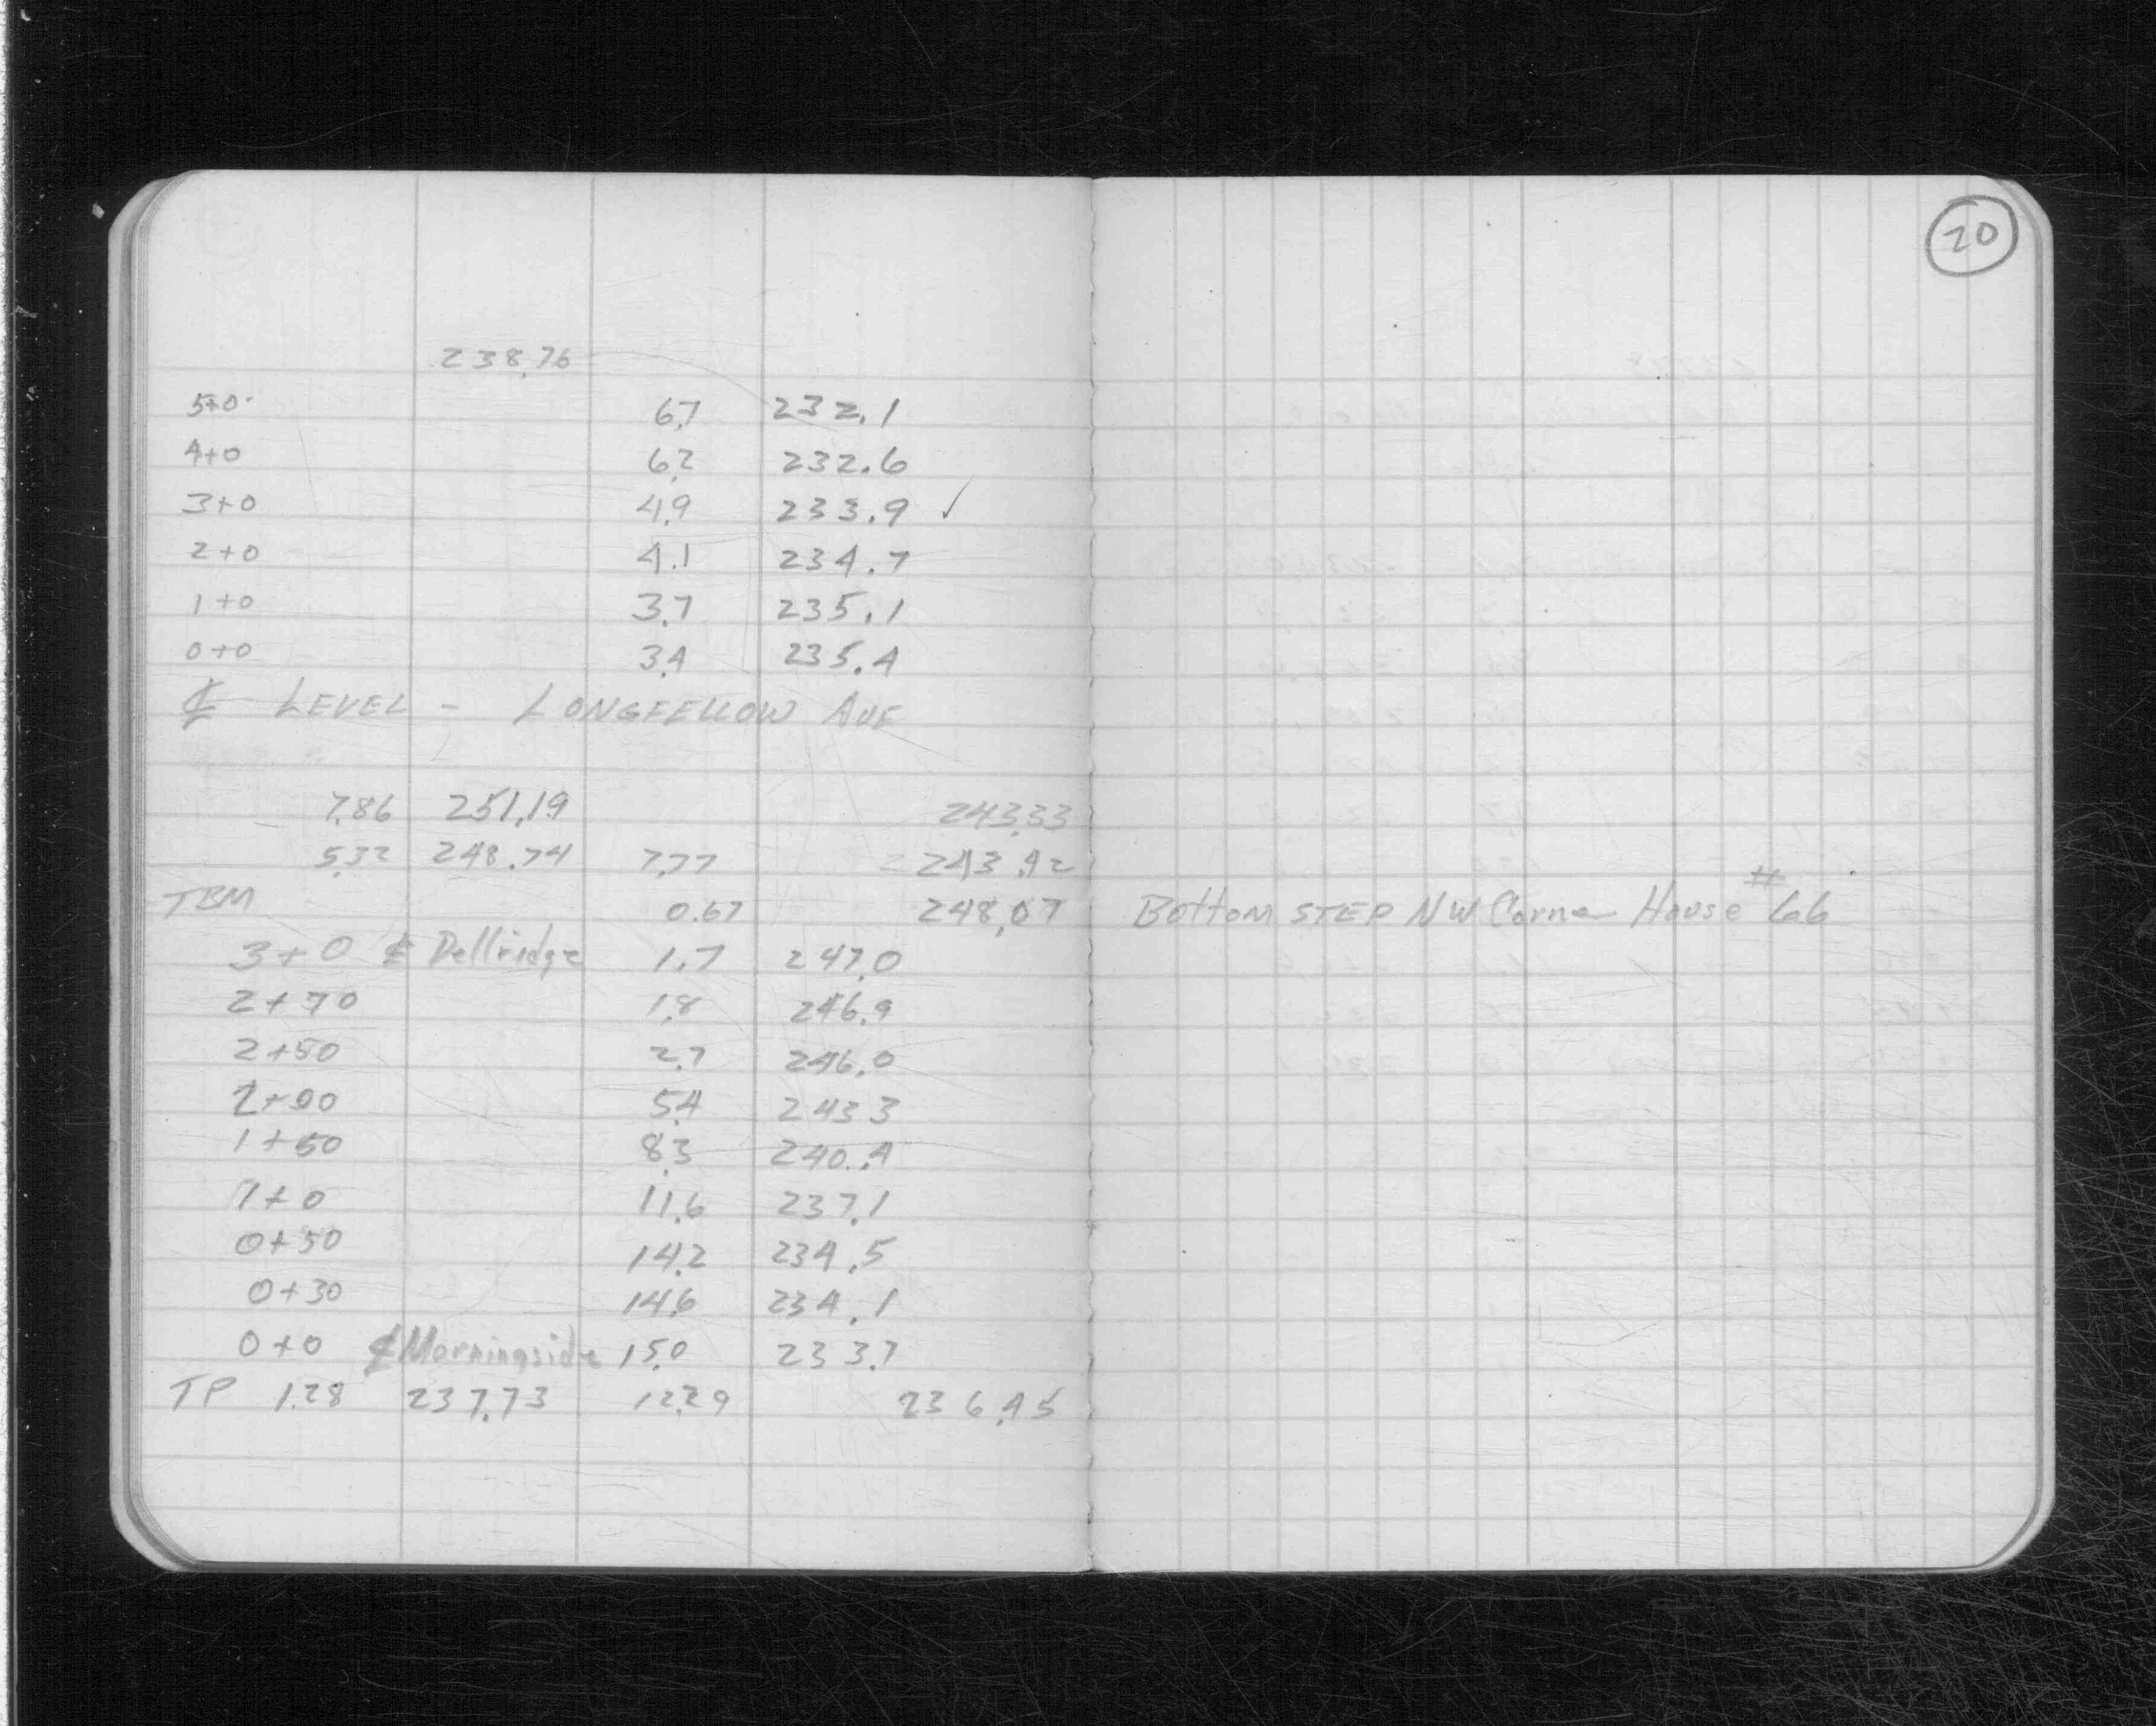 20
238.76
5+0 6.7 232.1
4+0 6.2 232.6
3+0 4.9 233.9 ✓
2+0 4.1 234.7
1+0 3.7 235.1
0+0 3.4 235.4
℄ LEVEL - LONGFELLOW AVE
7.86 251.19 243.33
5.32 248.74 7.77 243.42
TBM 0.67 248.07 Bottom STEP NW Corner House # 66
3+0 ℄ Dellridge 1.7 247.0
2+70 1.8 246.9
2+50 2.7 246.0
2+00 5.4 243 3
1+50 8.3 240.4
1+0 11.6 237.1
0+50 14.2 234.5
0+30 14.6 234.1
0+0 ℄ Morningside 15.0 233.7
TP 1.28 237.73 12.29 236.45